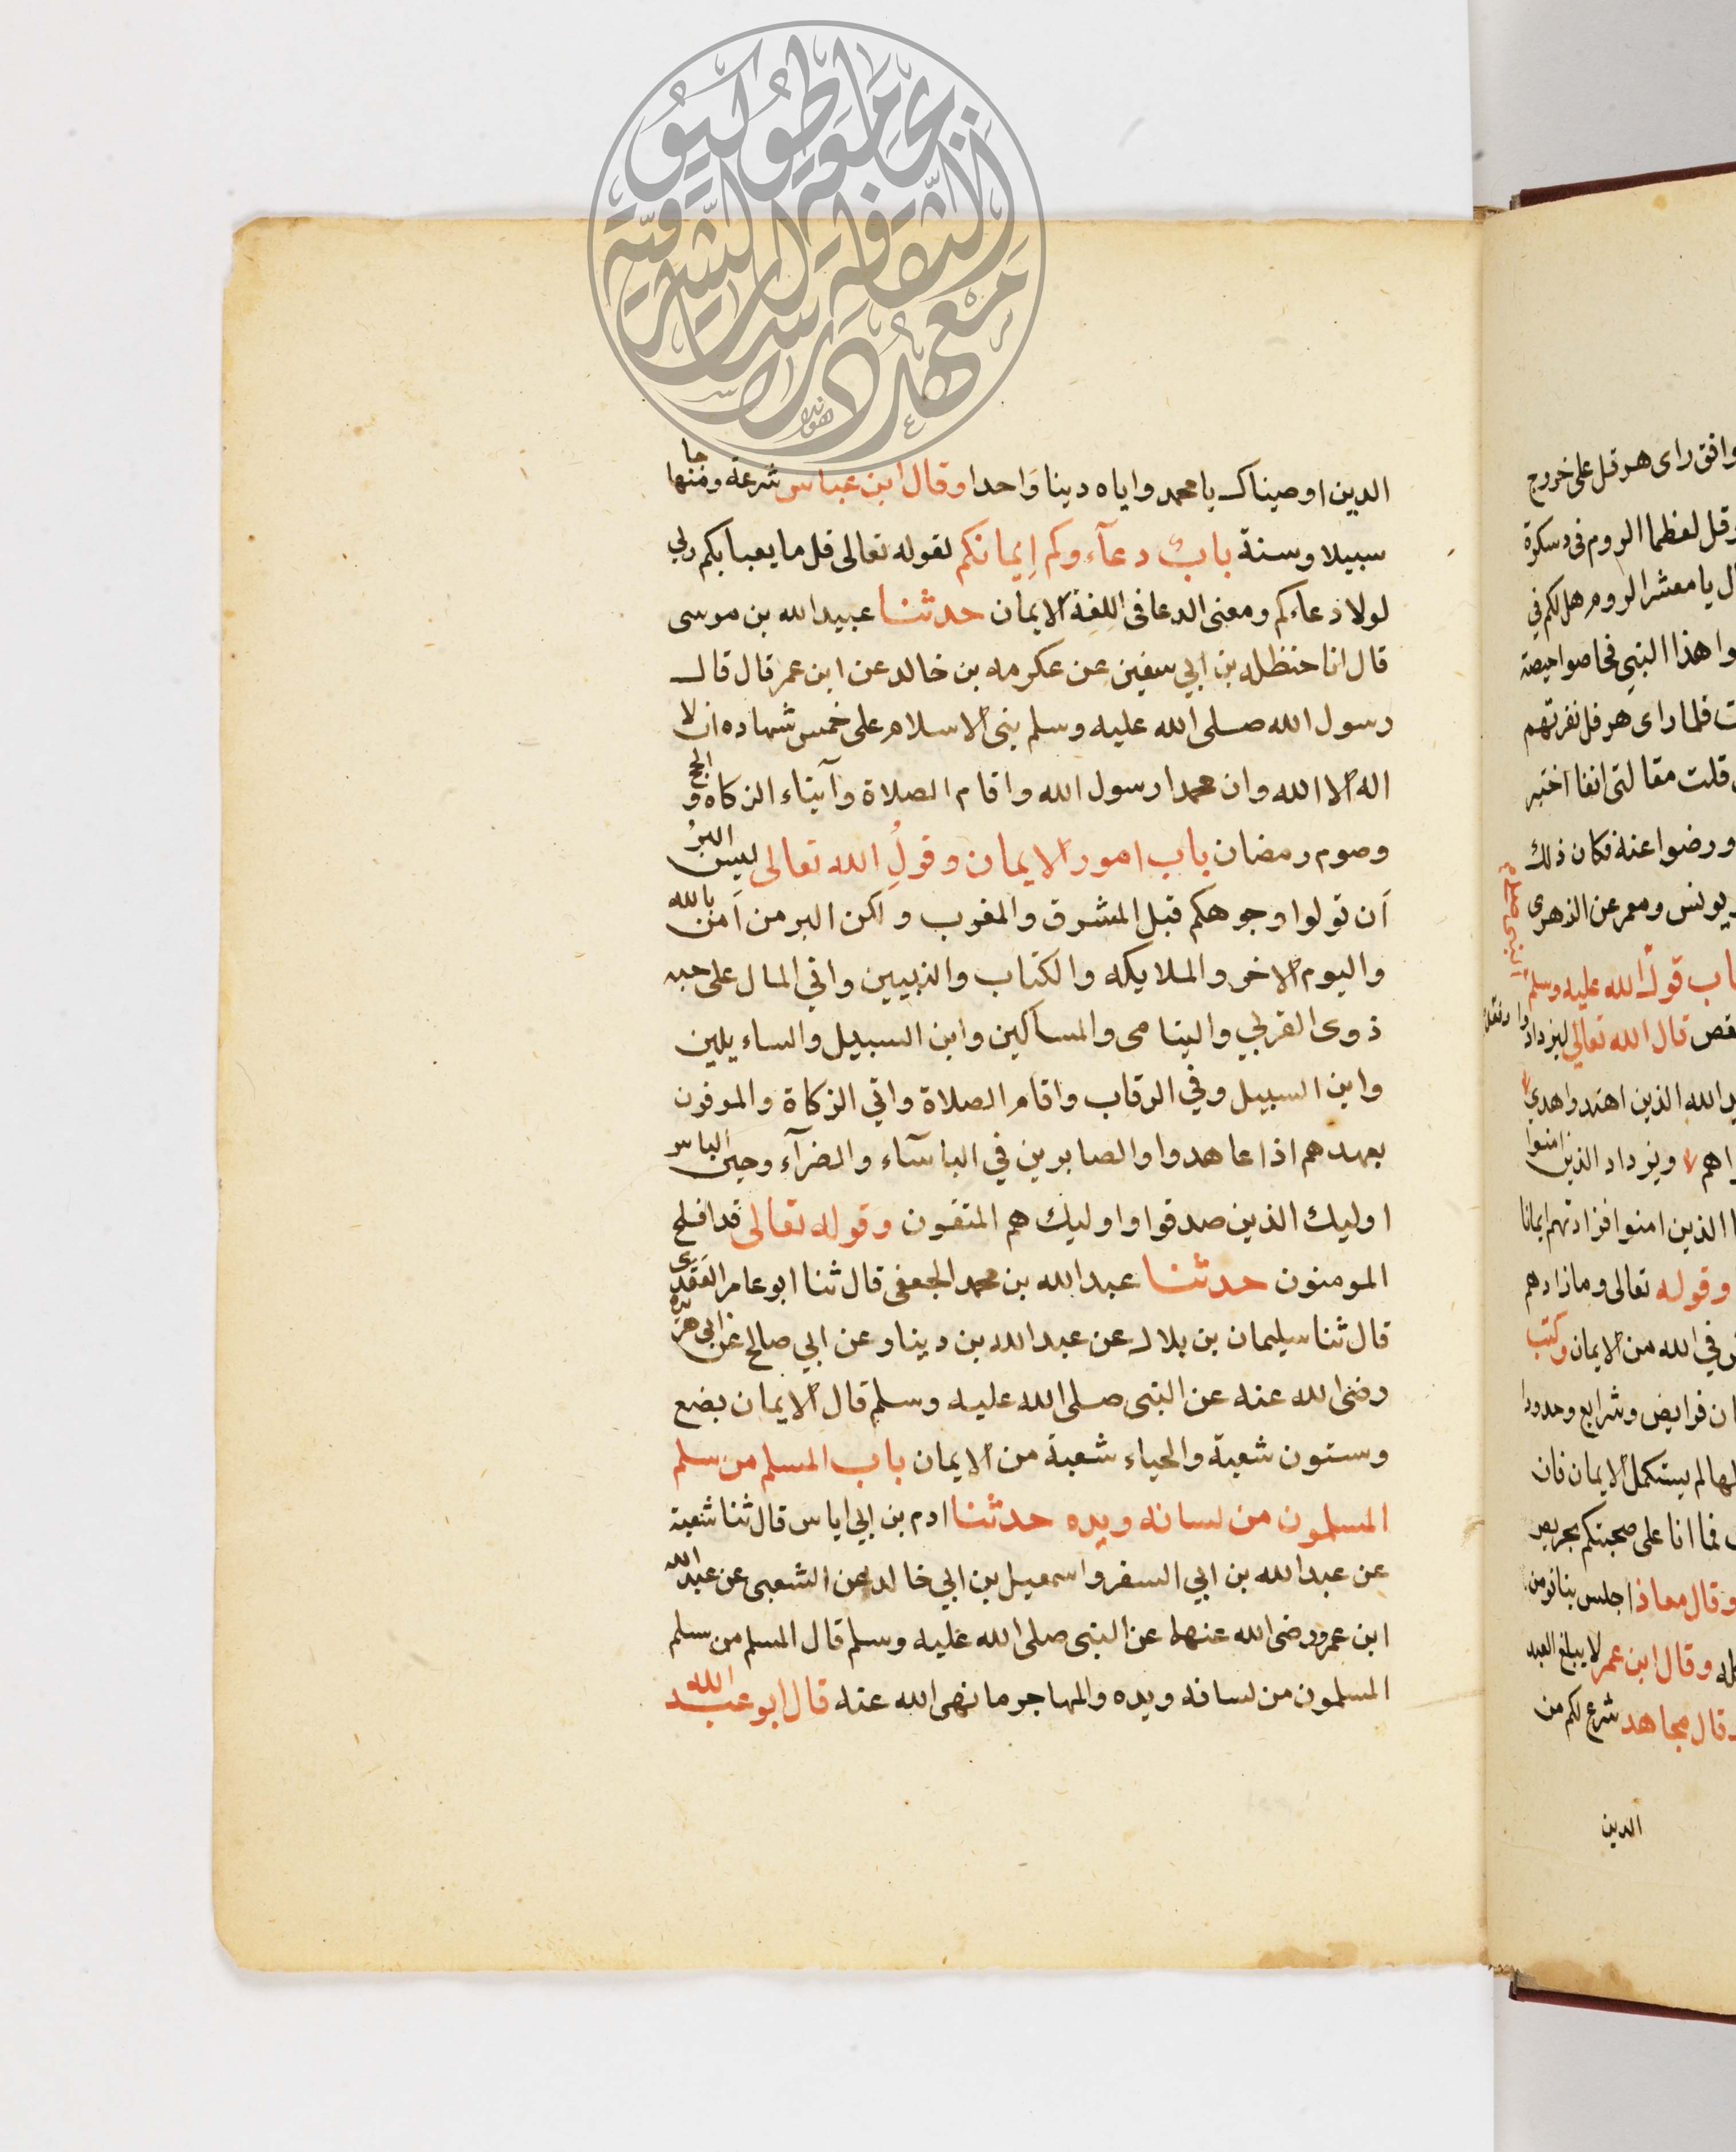 الدين اوصيناك يا محمد واياه دينا واحدا وقال ابن عباس شرعة ومنهاجا
سبيلا وسنة باب دعآء وكم إيمانكم لقوله تعالى قل ما يعبا بكم ربي
لولا دعاءكم ومعنى الدعا فى اللغة الايمان حدثنا عبيد الله بن موسى
قال انا حنظله بن ابي سفين عن عكرمه بن خالد عن ابن عمر قال قال
رسول الله صلى الله عليه وسلم بنى الاسلام على خمس شهاده ان لا
اله الا الله وان محمدا رسول الله واقام الصلاة وآيتاء الزكاه والحج
وصوم رمضان باب امور الايمان وقولِ الله تعالى ليس البرُ
أن تولوا وجوهكم قبل المشرق والمغرب ولكن البر من آمن بالله
واليوم الاخر والملايكه والكتاب والنبيين واتي المال على حبه
ذوى القربي واليتامى والمساكين وابن السبيل والساءيلين
وابن السبيل وفي الرقاب واقام الصلاة واتي الزكاة والموفون
بعهدهم اذا عاهدوا والصابرين في الباسآء والضرآء وحين الباس
اوليك الذين صدقوا واوليك هم المتقون وقوله تعالى قد افلح
المومنون حدثنا عبد الله بن محمد الجعفى قال ثنا ابو عامر العقدى
قال ثنا سليمان بن بلال عن عبد الله بن دينار عن ابي صالح عن ابى هريره
رضى الله عنه عن النبى صلى الله عليه وسلم قال الايمان بضع
وستون شعبة والحياء شعبة من الايمان باب المسلم من سلم
المسلمون من لسانه ويده حدثنا ادم بن ابي اياس قال ثنا شعبة
عن عبد الله بن ابي السفر واسمعيل بن ابي خالد عن الشعبى عن عبد الله
ابن عمرو رضى الله عنهما عن النبى صلى الله عليه وسلم قال المسلم من سلم
المسلمون من لسانه ويده والمهاجر ما نهى الله عنه قال ابو عبد الله
وافق راى هرقل على خروج
قل لعظما الروم فى دسكرة
ل يا معشر الروم هل لكم في
وا هذا النبي فحاصوا حيصة
ت فلما راى هرقل نفرتهم
قلت مقالتى انفا اختبر
ورضوا عنه فكان ذلك
يونس ومعمر عن الزهرى
اب قول الله عليه وسلم
النبى صلى
قص قال الله تعالي ليزدادوا
يد الله الذين اهتدوا هدي
اهم ويزداد الذين امنوا
ا الذين امنوا فزادتهم ايمانا
وقوله تعالى وما زادهم
ض في الله من الايمان وكتب
ان فرايض وشرايع وحدودا
لها لم يستكمل الايمان فان
فما انا على صحبتكم بحريص
وقال معاذ اجلس بنا نومن
له وقال ابن عمر لا يبلغ العبد
قال مجاهد شرع لكم من
الدين
معهد دراسات الثقافة الشرقية بجامعة طوكيو